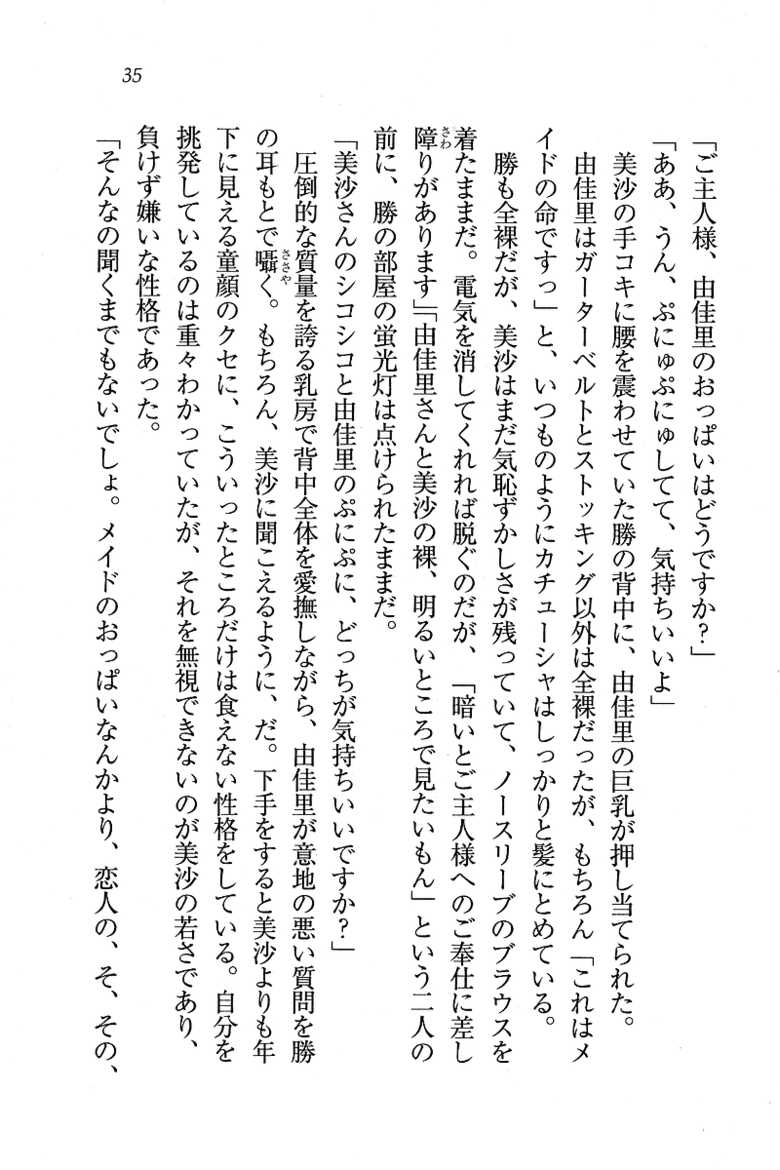 35
「ご主人様、由佳里のおっぱいはどうですか？」
「ああ、うん、ぷにゅぷにゅしてて、気持ちいいよ」
美沙の手コキに腰を震わせていた勝の背中に、由佳里の巨乳が押し当てられた。
由佳里はガーターベルトとストッキング以外は全裸だったが、もちろん「これはメ
イドの命ですっ」と、いつものようにカチューシャはしっかりと髪にとめている。
勝も全裸だが、美沙はまだ気恥ずかしさが残っていて、ノースリーブのブラウスを
着たままだ。電気を消してくれれば脱ぐのだが、「暗いとご主人様へのご奉仕に差し
障りがあります」「由佳里さんと美沙の裸、明るいところで見たいもん」という二人の
前に、勝の部屋の蛍光灯は点けられたままだ。
「美沙さんのシコシコと由佳里のぷにぷに、どっちが気持ちいいですか？」
圧倒的な質量を誇る乳房で背中全体を愛撫しながら、由佳里が意地の悪い質問を勝
の耳もとで囁く。もちろん、美沙に聞こえるように、だ。下手をすると美沙よりも年
下に見える童顔のクセに、こういったところだけは食えない性格をしている。自分を
挑発しているのは重々わかっていたが、それを無視できないのが美沙の若さであり、
負けず嫌いな性格であった。
「そんなの聞くまでもないでしょ。メイドのおっぱいなんかより、恋人の、そ、その、